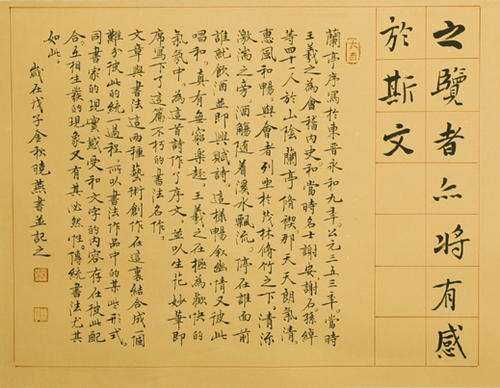 之覽者亦將有感
於斯文
蘭亭序寫於東晉永和九年。公元三五三年。當時
王羲之為會稽內史和當時名士謝安謝石孫綽
等四十一人於山陰蘭亭脩禊那天天朗氣清
惠風和暢。與會者列坐於茂林脩竹之下,清源
激湍之旁酒觴隨着溪水飄流。停在誰面前
誰就飲酒並即興賦詩。這樣暢敘幽情又彼此
唱和。真有無窮樂趣。王羲之在極為歡快的
氣氛中。為這首詩作了序文。並以生花妙筆即
席寫下了這篇不朽的書法名作。
文章與書法這兩種藝術創作在這裏結合成個
難分彼此的統一過程。所以書法作品中的某些形式。
同書家的現實感受和文字的內容存在彼此配
合互相生發的現象又有其必然性。傳統書法尤其
如此。
歲在戊子金秋曉燕書並記之